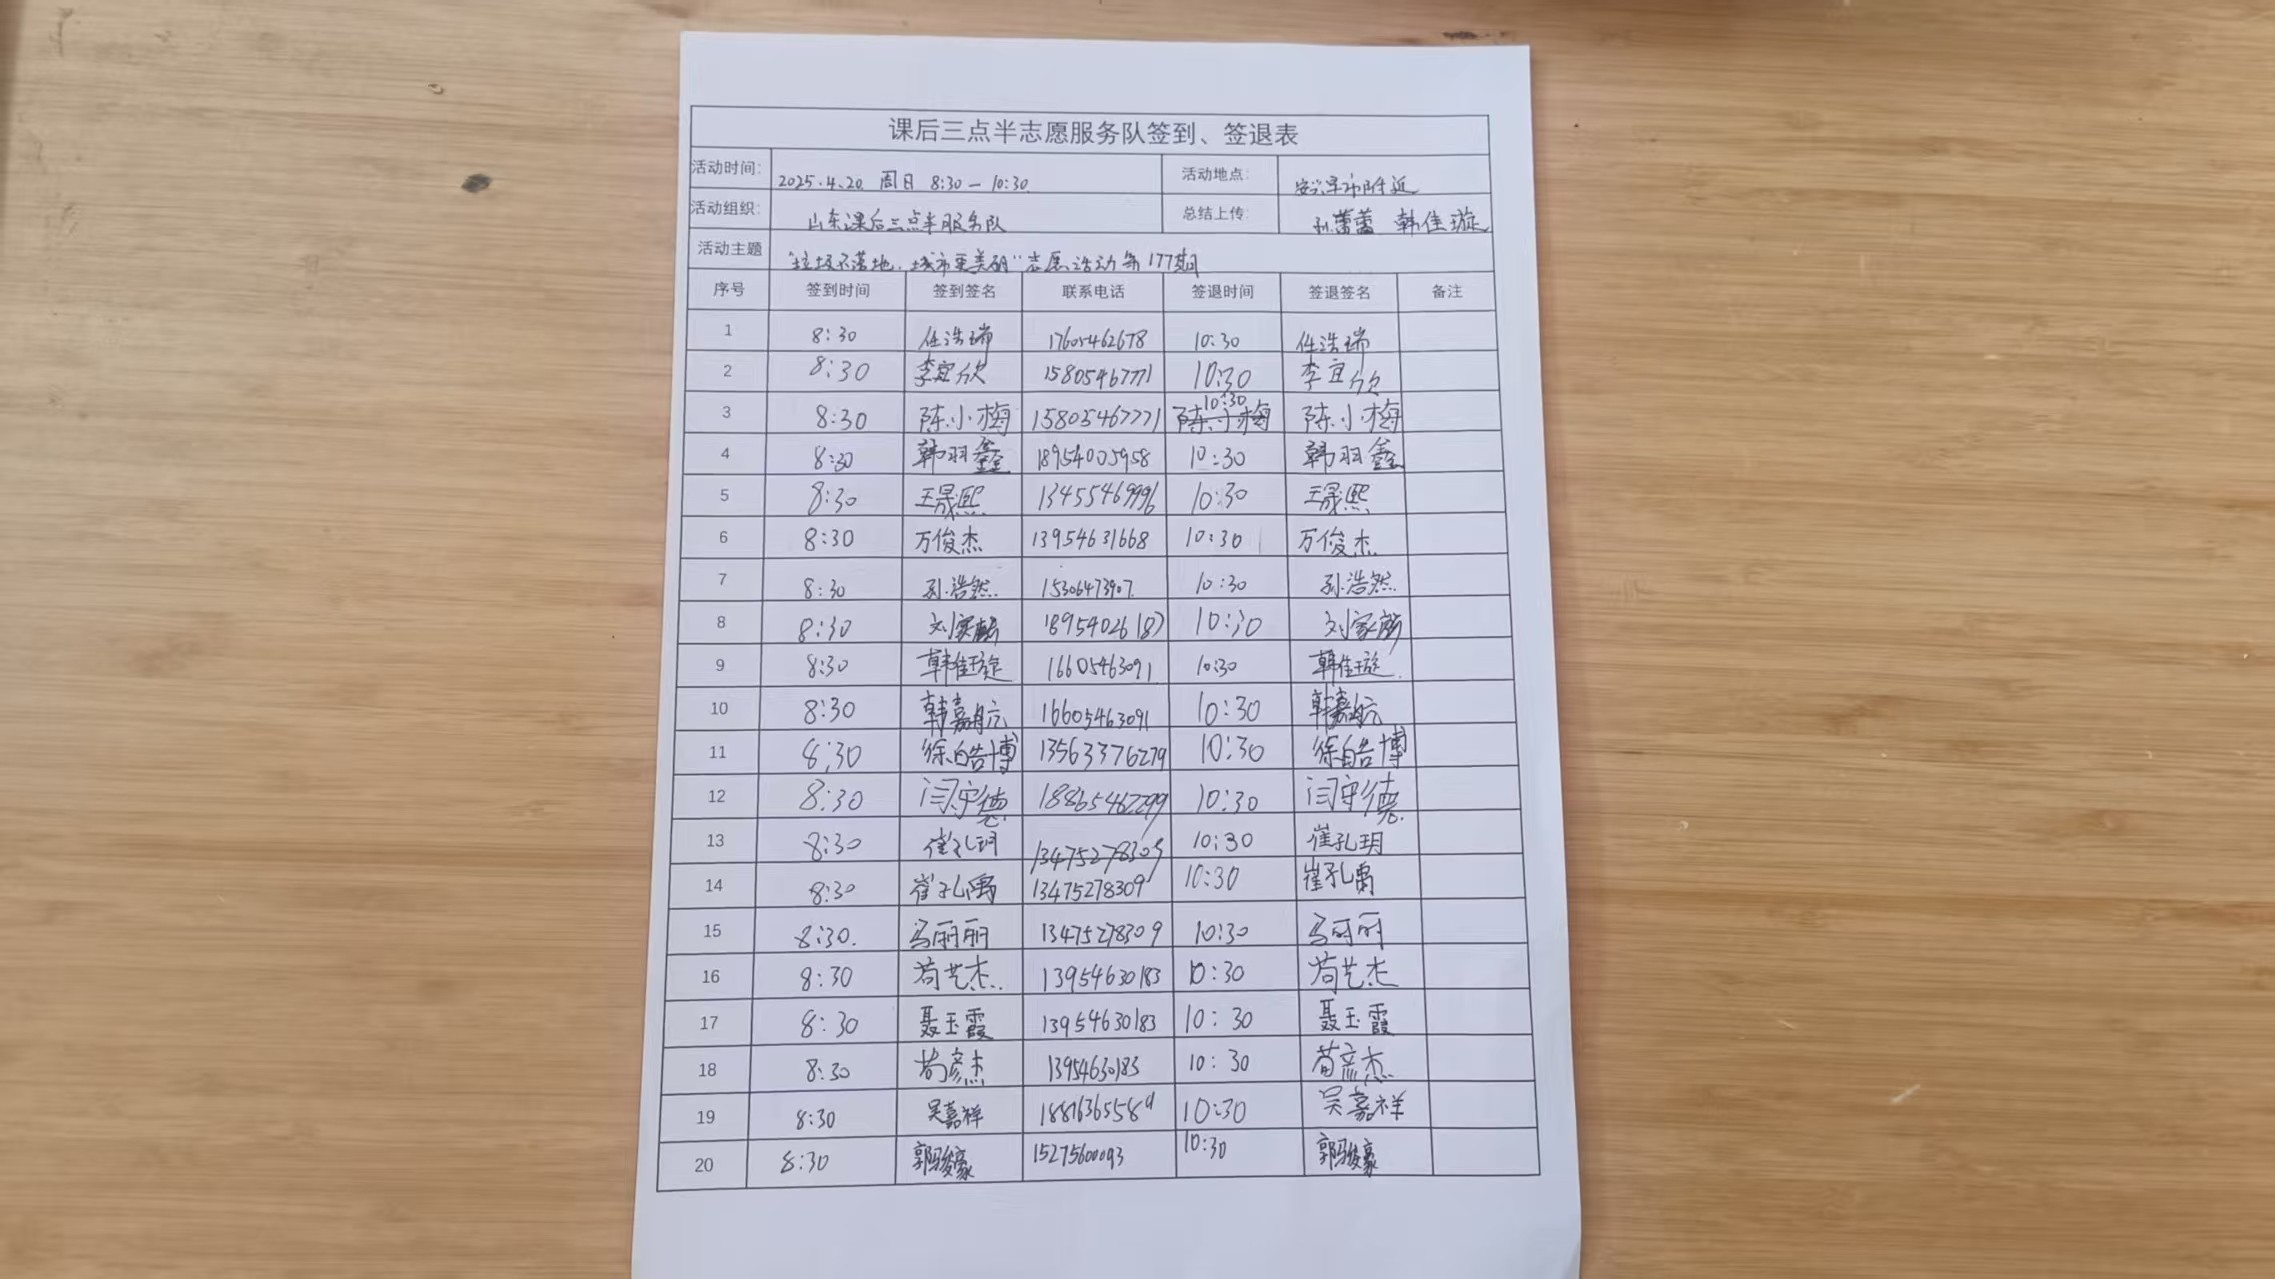 课后三点半志愿服务队签到、签退表
活动时间: 2025.4.20 周日 8:30—10:30 活动地点: 安兴早市附近
活动组织: 山东课后三点半服务队 总结上传: 孙蕾蕾 韩佳璇
活动主题 “垃圾不落地,城市更美丽”志愿活动第177期
序号 签到时间 签到签名 联系电话 签退时间 签退签名 备注
1 8:30 任浩瑞 17605462678 10:30 任浩瑞
2 8:30 李宜欣 15805467771 10:30 李宜欣
3 8:30 陈小梅 15805467771 10:30 陈小梅
4 8:30 韩羽鑫 18954005958 10:30 韩羽鑫
5 8:30 王晟熙 13455469996 10:30 王晟熙
6 8:30 万俊杰 13954631668 10:30 万俊杰
7 8:30 孙浩然 15306473907 10:30 孙浩然
8 8:30 刘家麟 18954026187 10:30 刘家麟
9 8:30 韩佳璇 16605463091 10:30 韩佳璇
10 8:30 韩嘉航 16605463091 10:30 韩嘉航
11 8:30 徐皓博 13563376279 10:30 徐皓博
12 8:30 闫守德 18865462299 10:30 闫守德
13 8:30 崔孔玥 13475278309 10:30 崔孔玥
14 8:30 崔孔禹 13475278309 10:30 崔孔禹
15 8:30 马丽丽 13475278309 10:30 马丽丽
16 8:30 苟艺杰 13954630183 10:30 苟艺杰
17 8:30 聂玉霞 13954630183 10:30 聂玉霞
18 8:30 苟彦杰 13954630183 10:30 苟彦杰
19 8:30 吴嘉祥 18816365589 10:30 吴嘉祥
20 8:30 郭骏豪 15275600093 10:30 郭骏豪